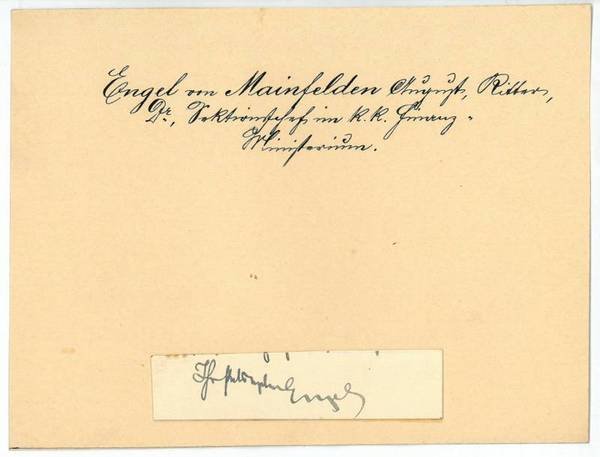 Engel von Mainfelden August, Ritter,
Dr., Sektionschef im k. k. Finanz-
Ministerium.
Engel